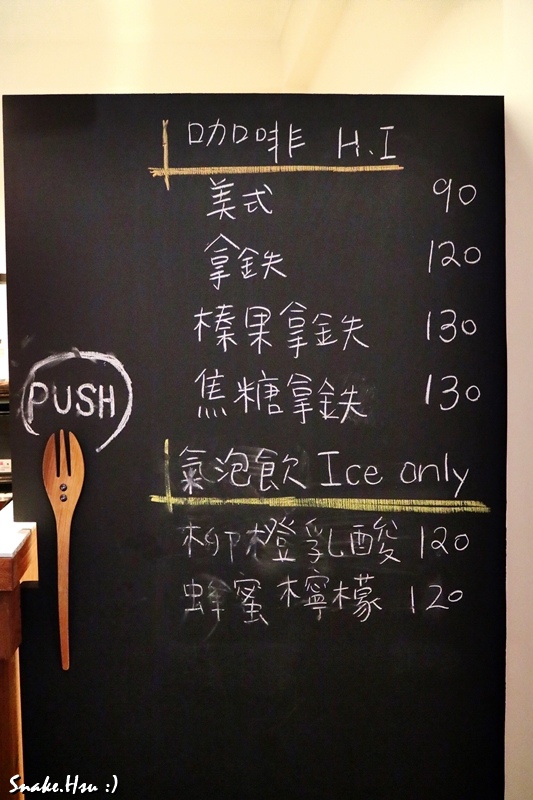 咖啡 H.I
美式 90
拿鉄 120
榛果拿鉄 130
焦糖拿鉄 130
PUSH
氣泡飲 Ice only
柳橙乳酸 120
蜂蜜檸檬 120
Snake.Hsu :)